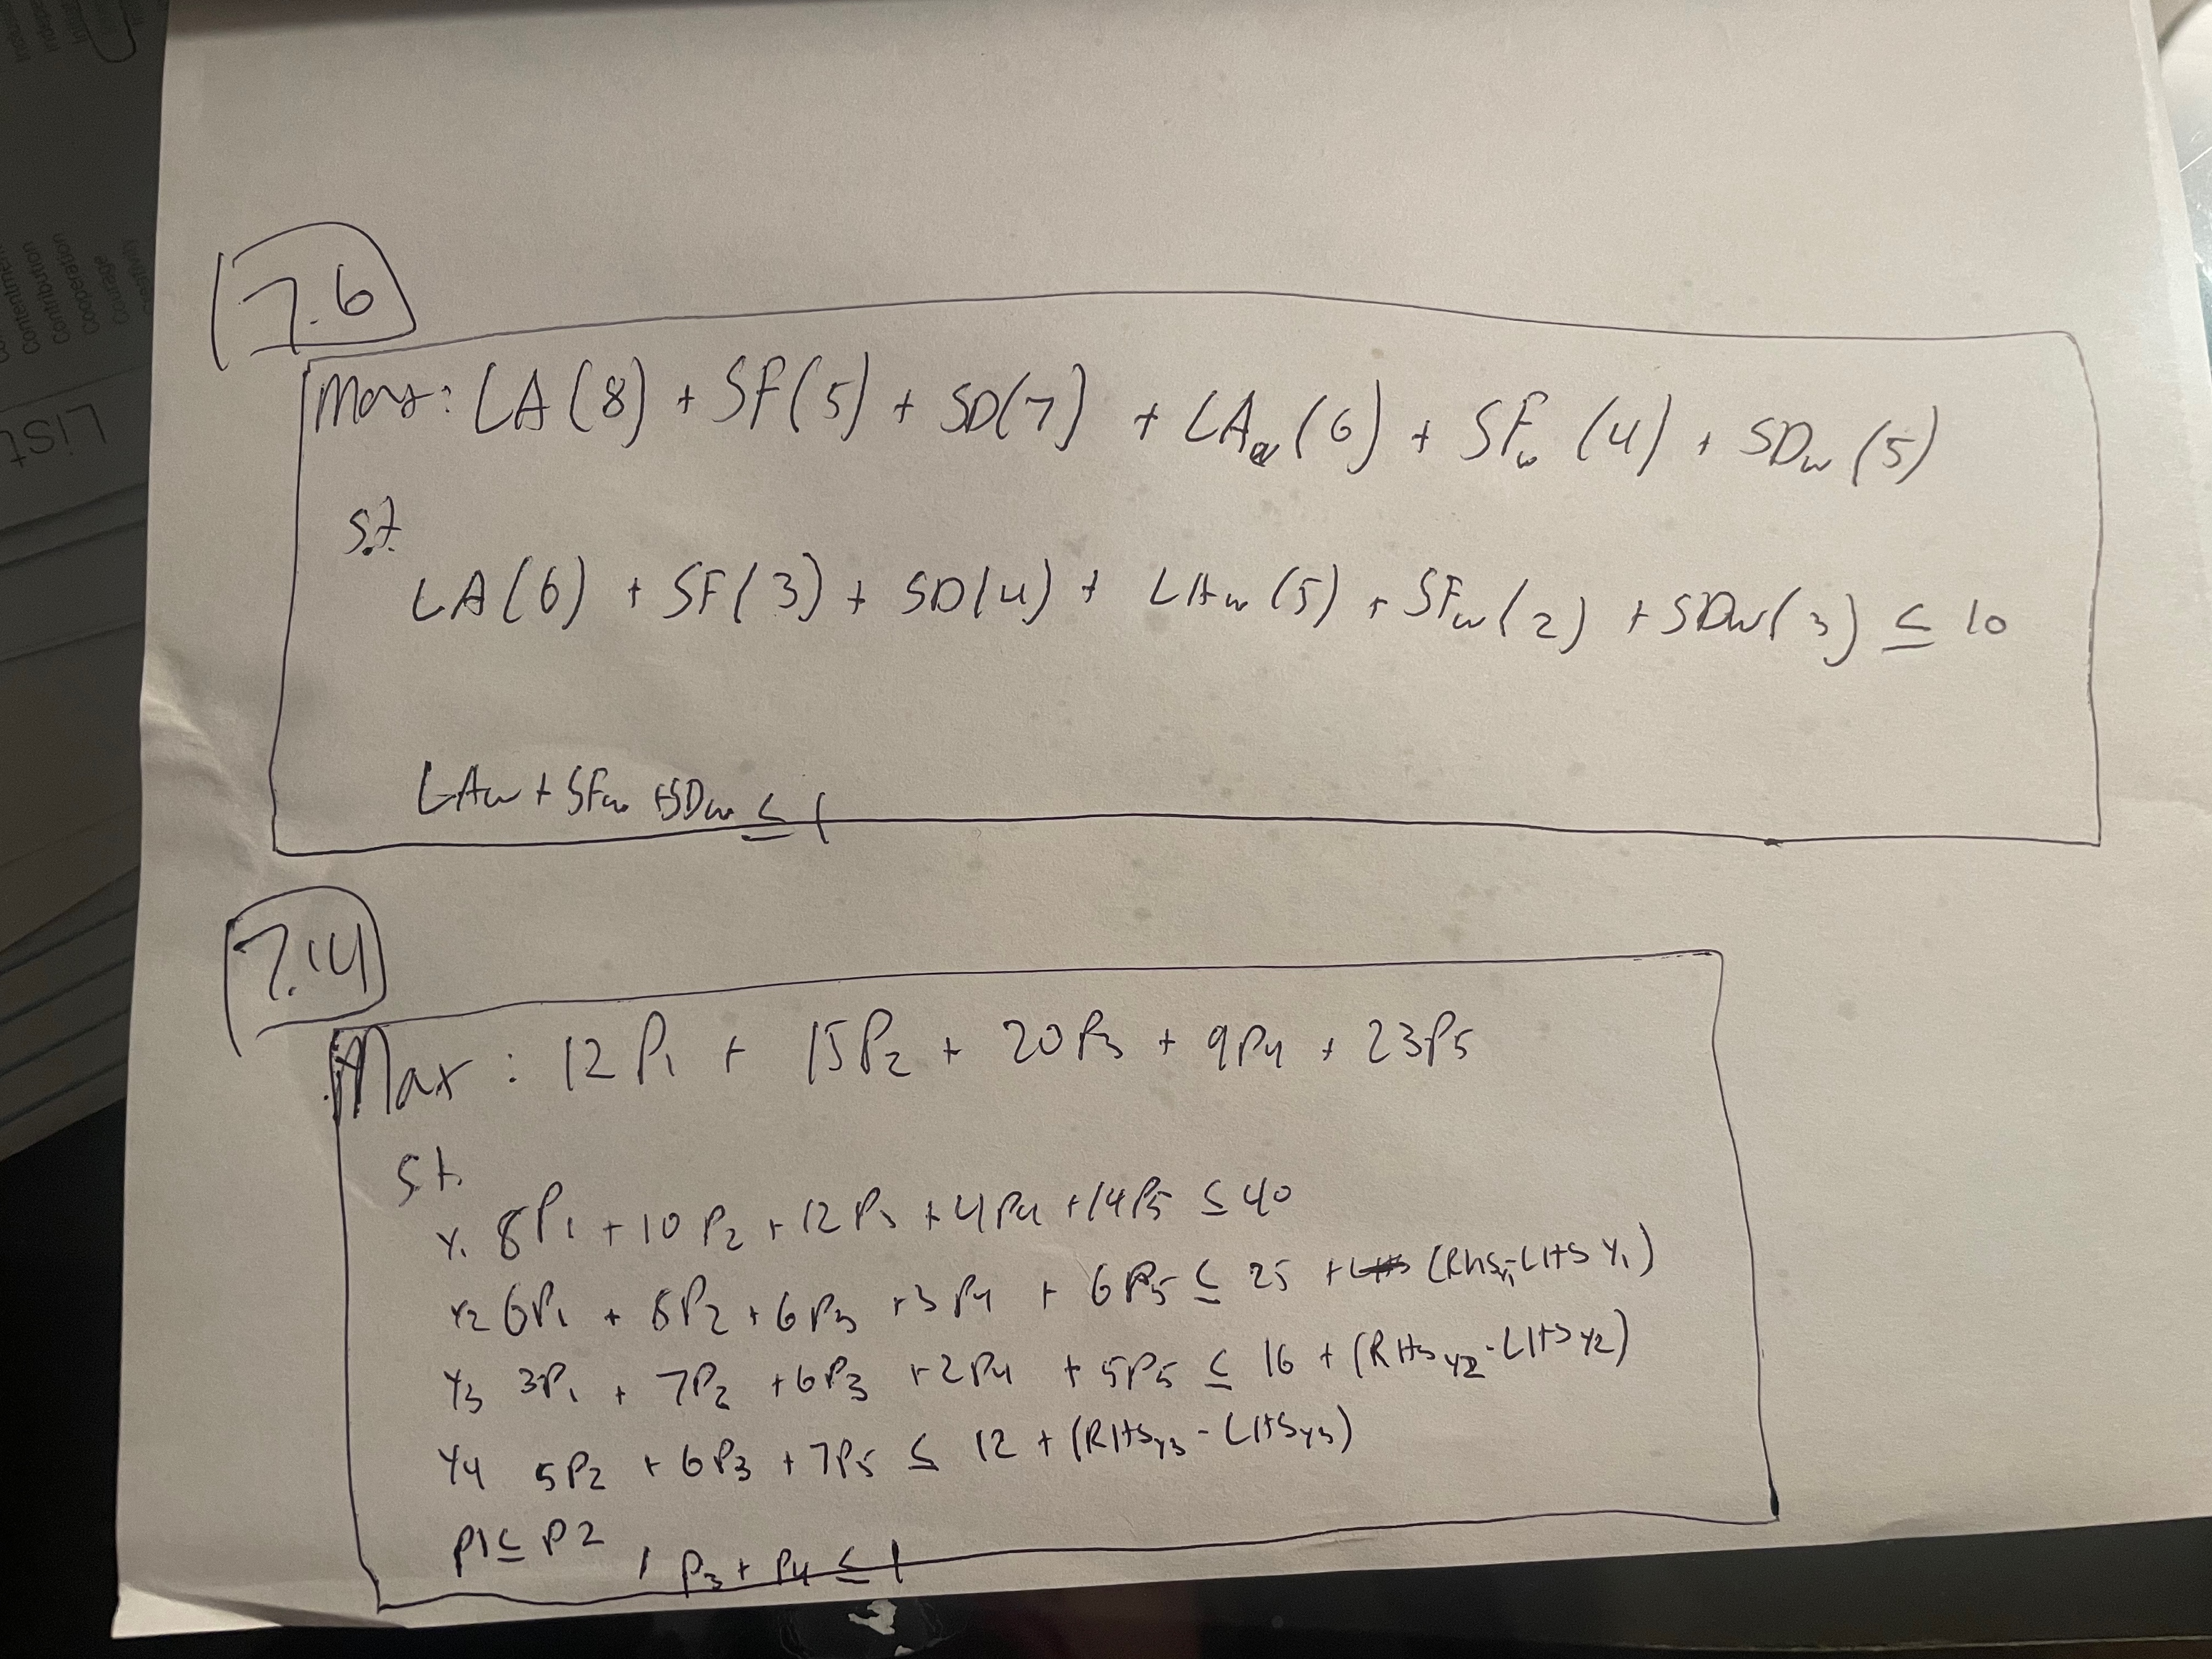 7.6
Max: LA(8) + SF(5) + SD(7) + LAw(6) + SFw(4) + SDw(5)
s.t.
LA(6) + SF(3) + SD(4) + LAw(5) + SFw(2) + SDw(3) ≤ 10
LAw + SFw + SDw ≤ 1
7.14
Max: 12P1 + 15P2 + 20P3 + 9P4 + 23P5
St.
Y1 8P1 + 10P2 + 12P3 + 4P4 + 14P5 ≤ 40
Y2 6P1 + 8P2 + 6P3 + 3P4 + 6P5 ≤ 25 + (RHSY1-LHSY1)
Y3 3P1 + 7P2 + 6P3 + 2P4 + 5P5 ≤ 16 + (RHSY2-LHSY2)
Y4 5P2 + 6P3 + 7P5 ≤ 12 + (RHSY3-LHSY3)
P1 ≤ P2, P3 + P4 ≤ 1
List
Contentment
Contribution
Cooperation
Courage
Creativity